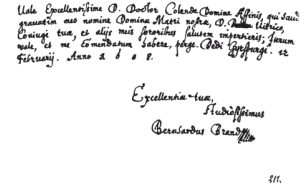 Vale Excellentissime D. Doctor Colende Domine Affinis, qui
meo nomine Dominæ Matri nostræ, D.
Coniugi tuæ, et alijs meis sororibus salutem impertieris; iterum
vale, et me comendatum habere, perge. Dedi 12
Februarij. Anno 1608.
Excellentiæ tuæ,
Studiosissimus
Bernardus Brand
211.